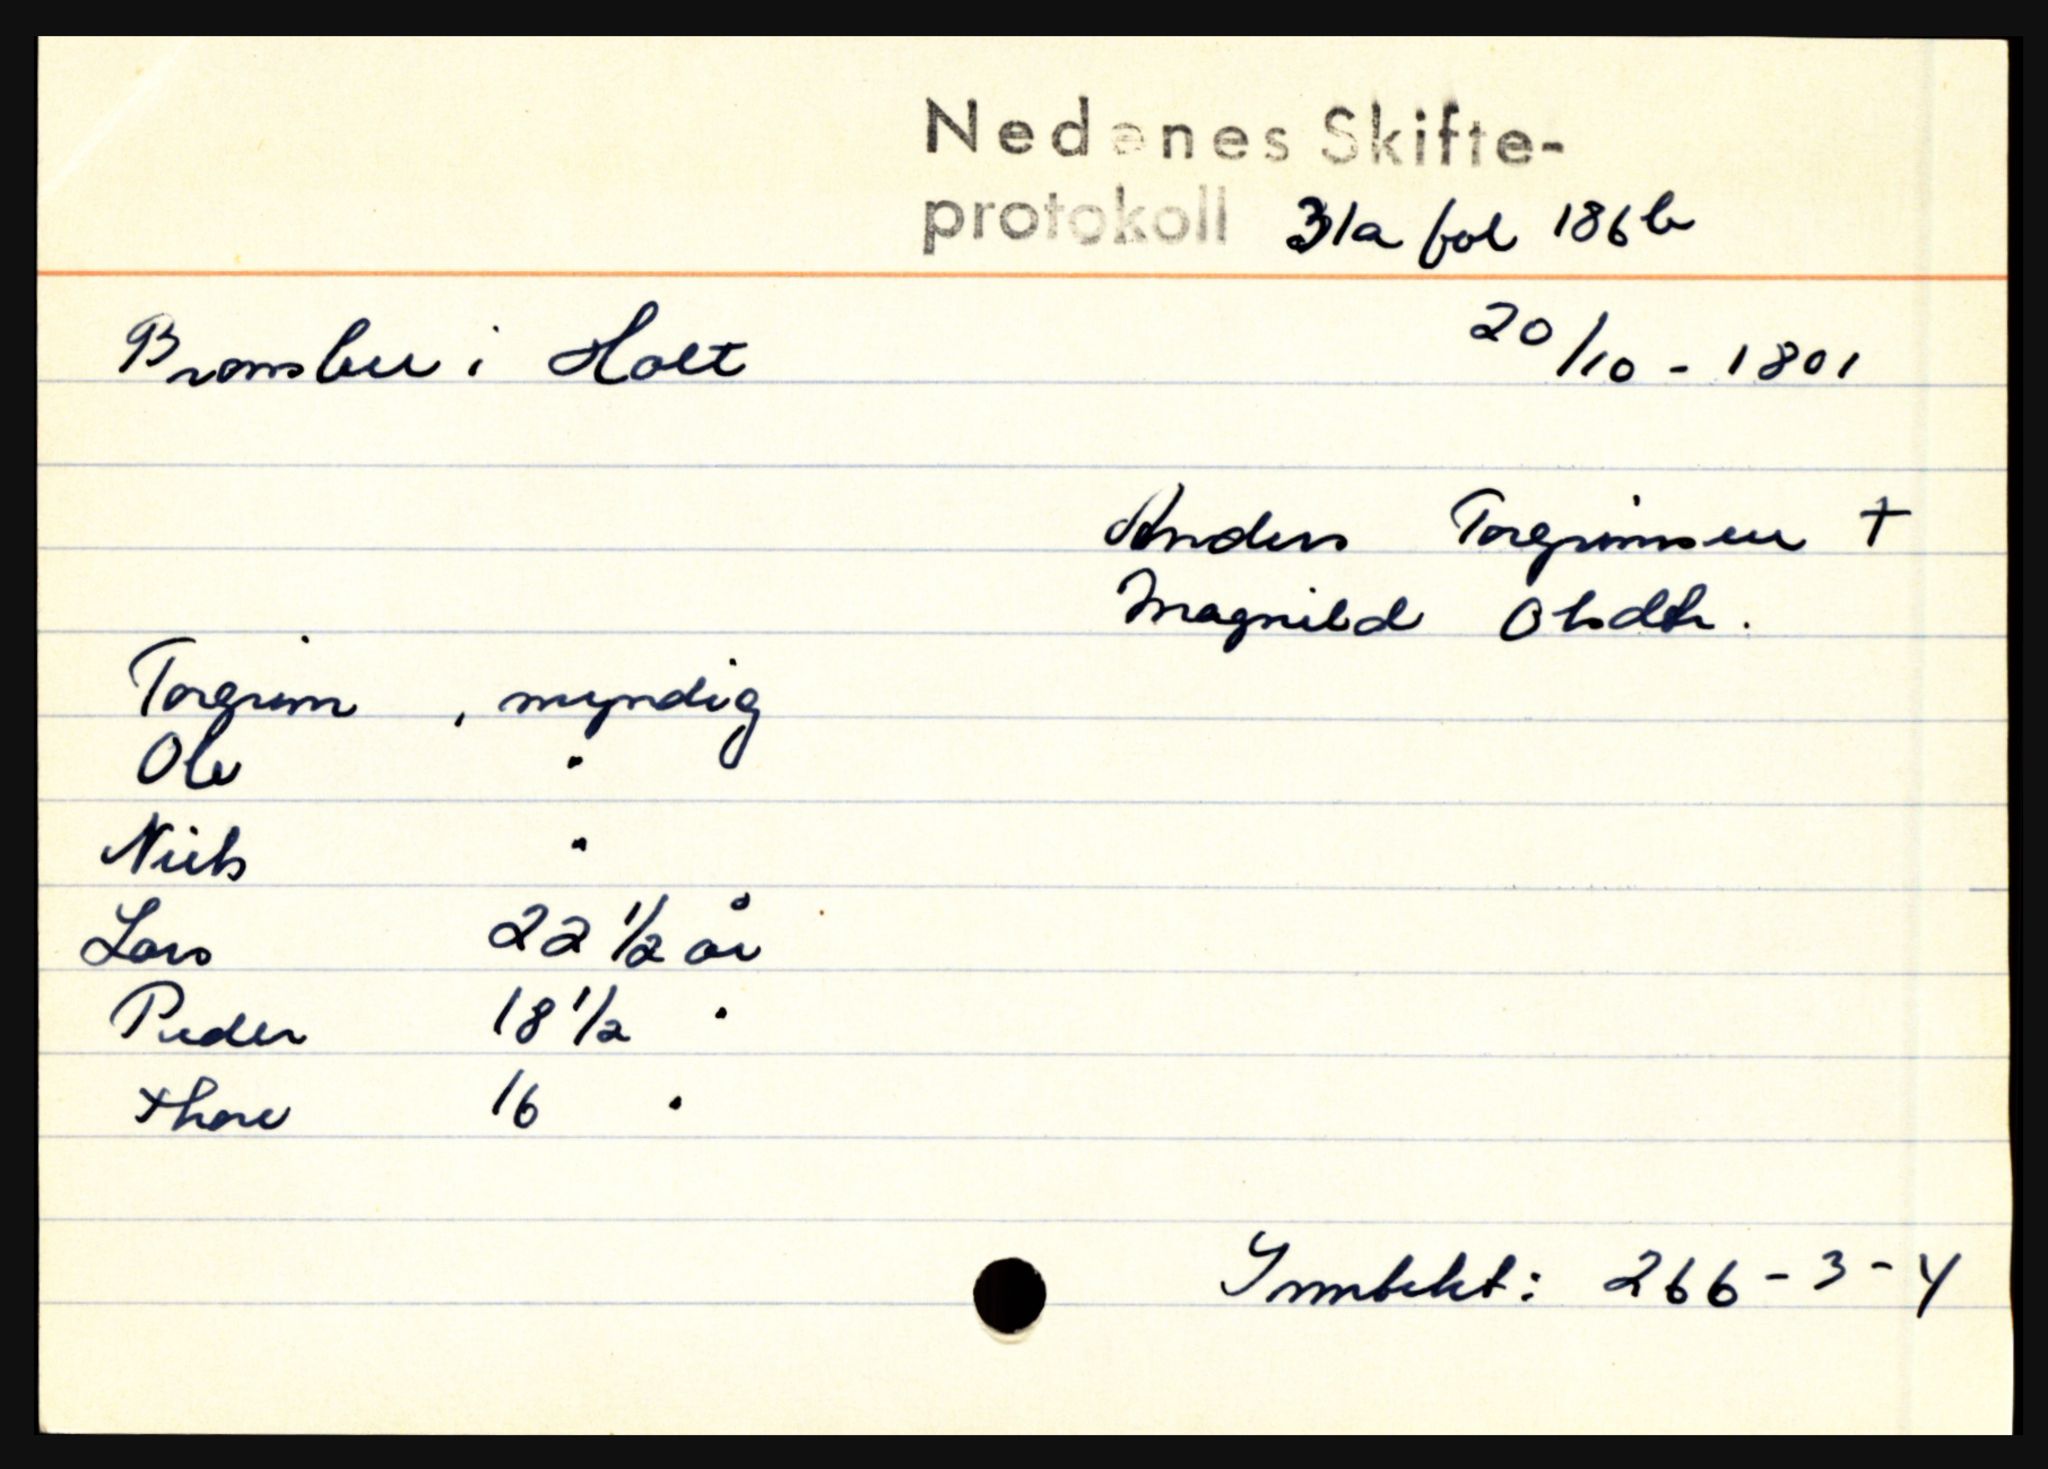 Nedenes Skifte-
protokoll 31a fol 186b
Bronsbu i Holt 20/10 - 1801
Anders Torgrimsen +
Magnild Olsdtr.
Torgrim , myndig
Ole "
Niels "
Lars 22 1/2 år
Peder 18 1/2 "
Thore 16 "
Inntekt: 266-3-4